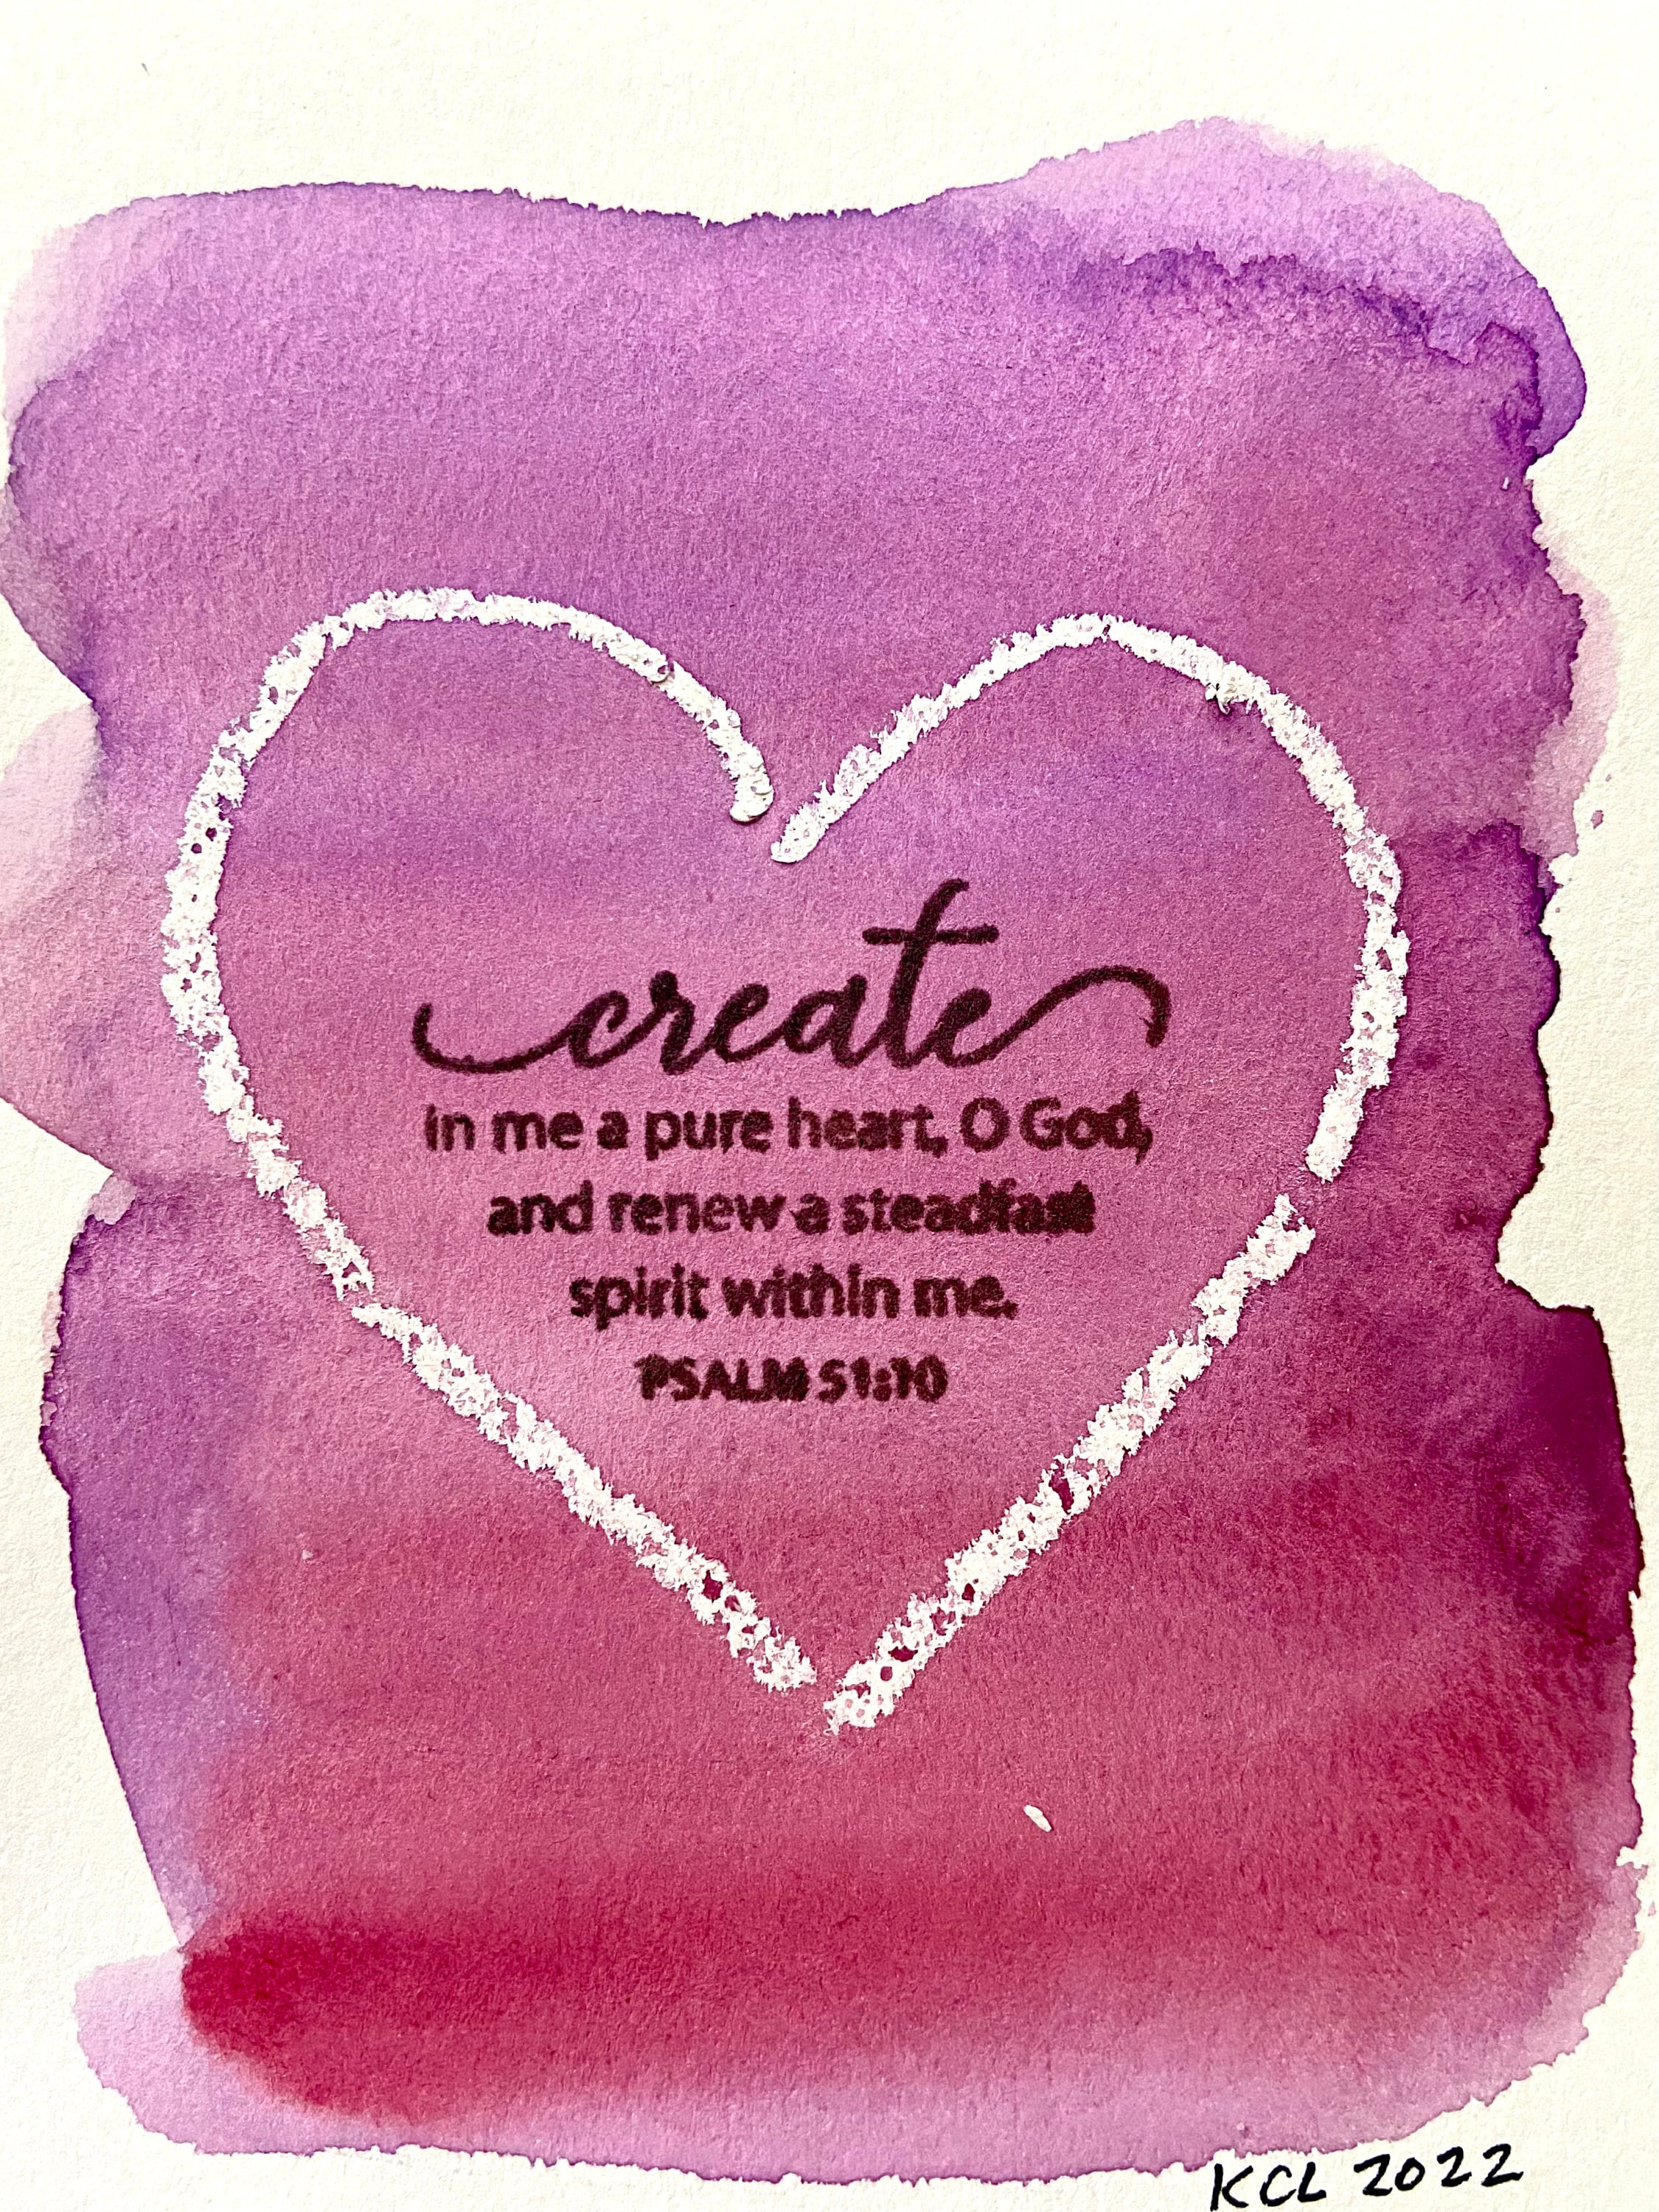 create
in me a pure heart, O God,
and renew a steadfast
spirit within me.
PSALM 51:10
KCL 2022